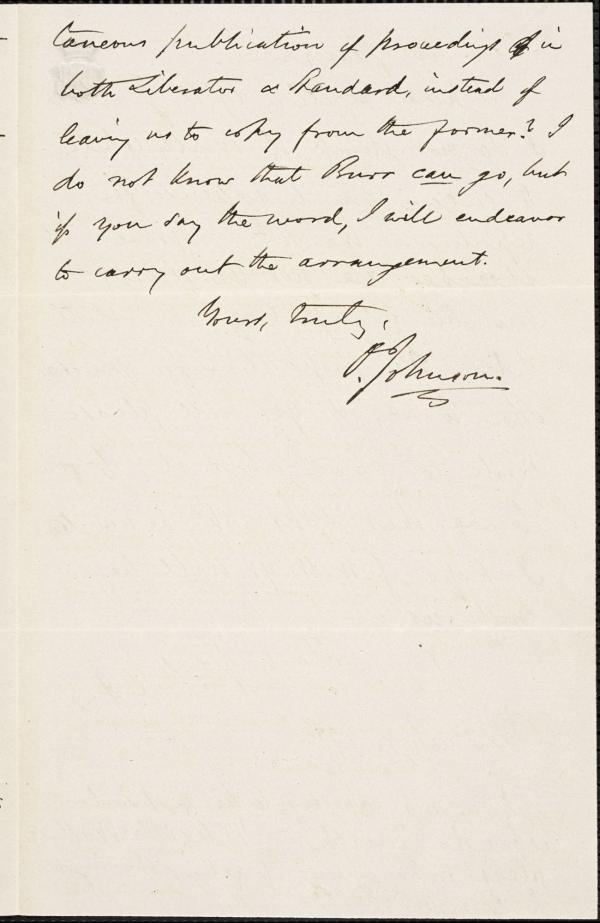 taneous publication of proceedings in
both Liberator & Standard, instead of
leaving us to copy from the former? I
do not know that Burr can go, but
if you say the word, I will endeavor
to carry out the arrangement.
Yours, truly,
O. Johnson.